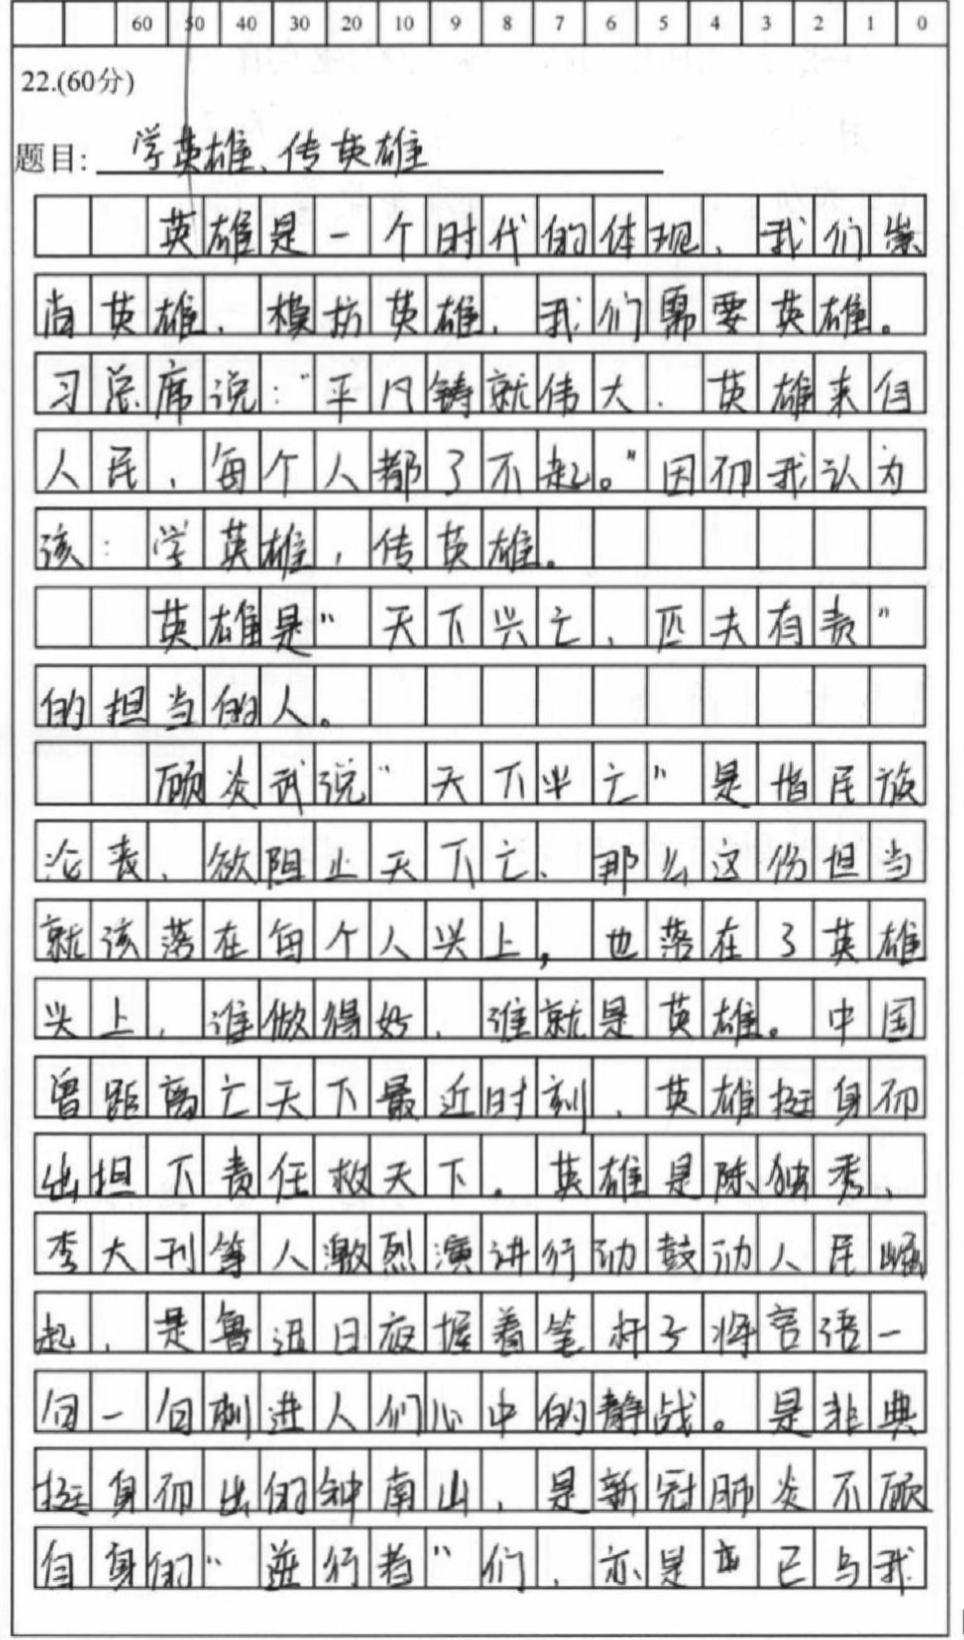 60 50 40 30 20 10 9 8 7 6 5 4 3 2 1 0
22.(60分)
题目: 学英雄、传英雄
英雄是一个时代的体现，我们崇
尚英雄，模仿英雄，我们需要英雄。
习总席说:“平凡铸就伟大，英雄来自
人民，每个人都了不起。”因而我认为
该：学英雄，传英雄。
英雄是“天下兴亡，匹夫有责”
的担当的人。
顾炎武说“天下兴亡”是指民族
沦丧，欲阻止天下亡、那么这份担当
就该落在每个人头上，也落在了英雄
头上，谁做得好，谁就是英雄。中国
曾距离亡天下最近时刻，英雄挺身而
出担下责任救天下。英雄是陈独秀、
李大刊等人激烈演讲行动鼓动人民崛
起，是鲁迅日夜握着笔杆子将言语一
句一句刺进人们心中的静战。是非典
挺身而出的钟南山，是新冠肺炎不顾
自身的“逆行者”们，亦是已与我